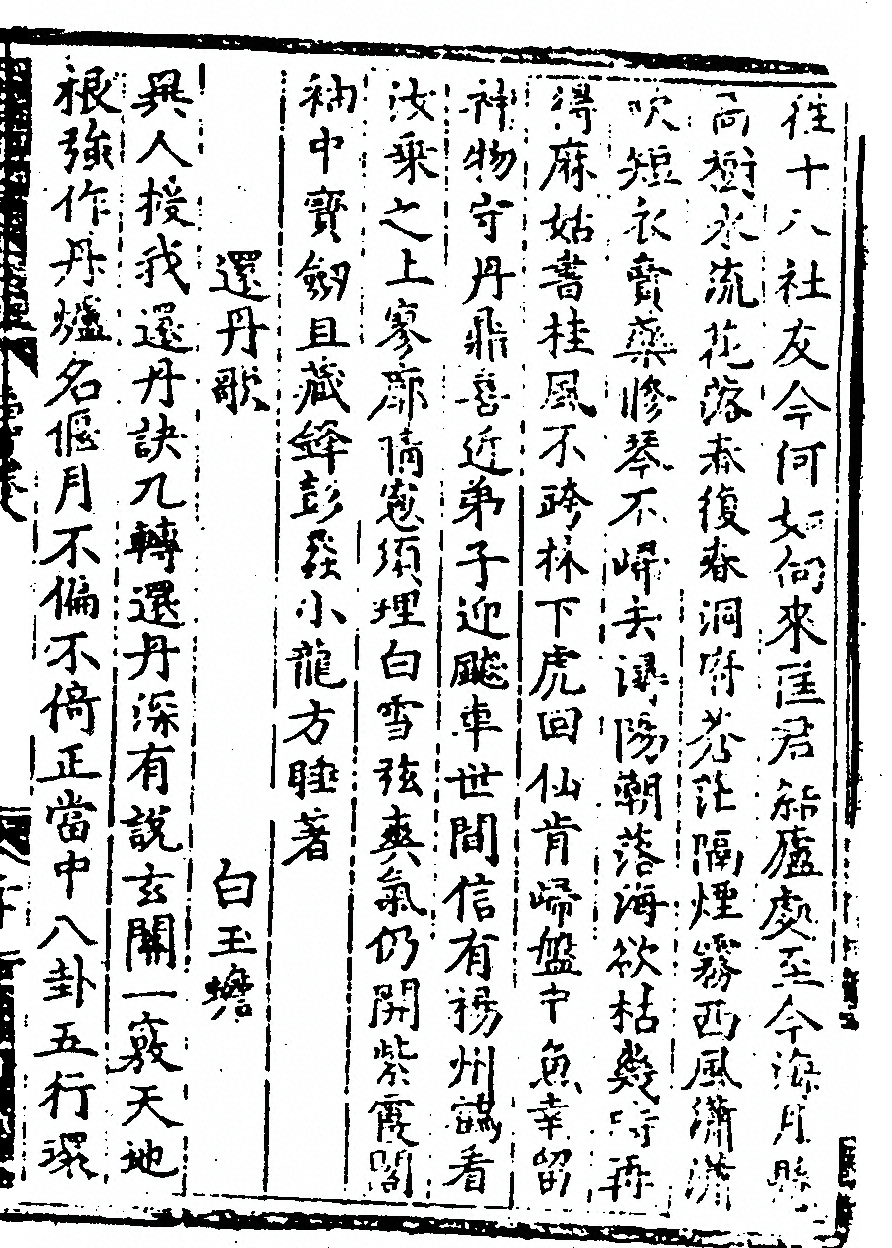 往十八社友今何如何來匡君結廬處至今海月懸
高樹水流花落春復春洞府茫茫隔煙霧西風瀟瀟
吹短衣賣藥修琴不歸去潯陽潮落海欲枯幾時再
得麻姑書桂風不跨林下虎回仙肯歸盤中魚幸留
神物守丹鼎喜近弟子迎飈車世間信有楊州鶴看
汝乗之上寥廓隋寃須埋白雪弦爽氣仍開紫霞閣
袖中寶劒且藏鋒彭蠡小龍方睡著
還丹歌 白玉蟾
異人授我還丹訣九轉還丹深有說玄關一竅天地
根強作丹爐名偃月不偏不倚正當中八卦五行環